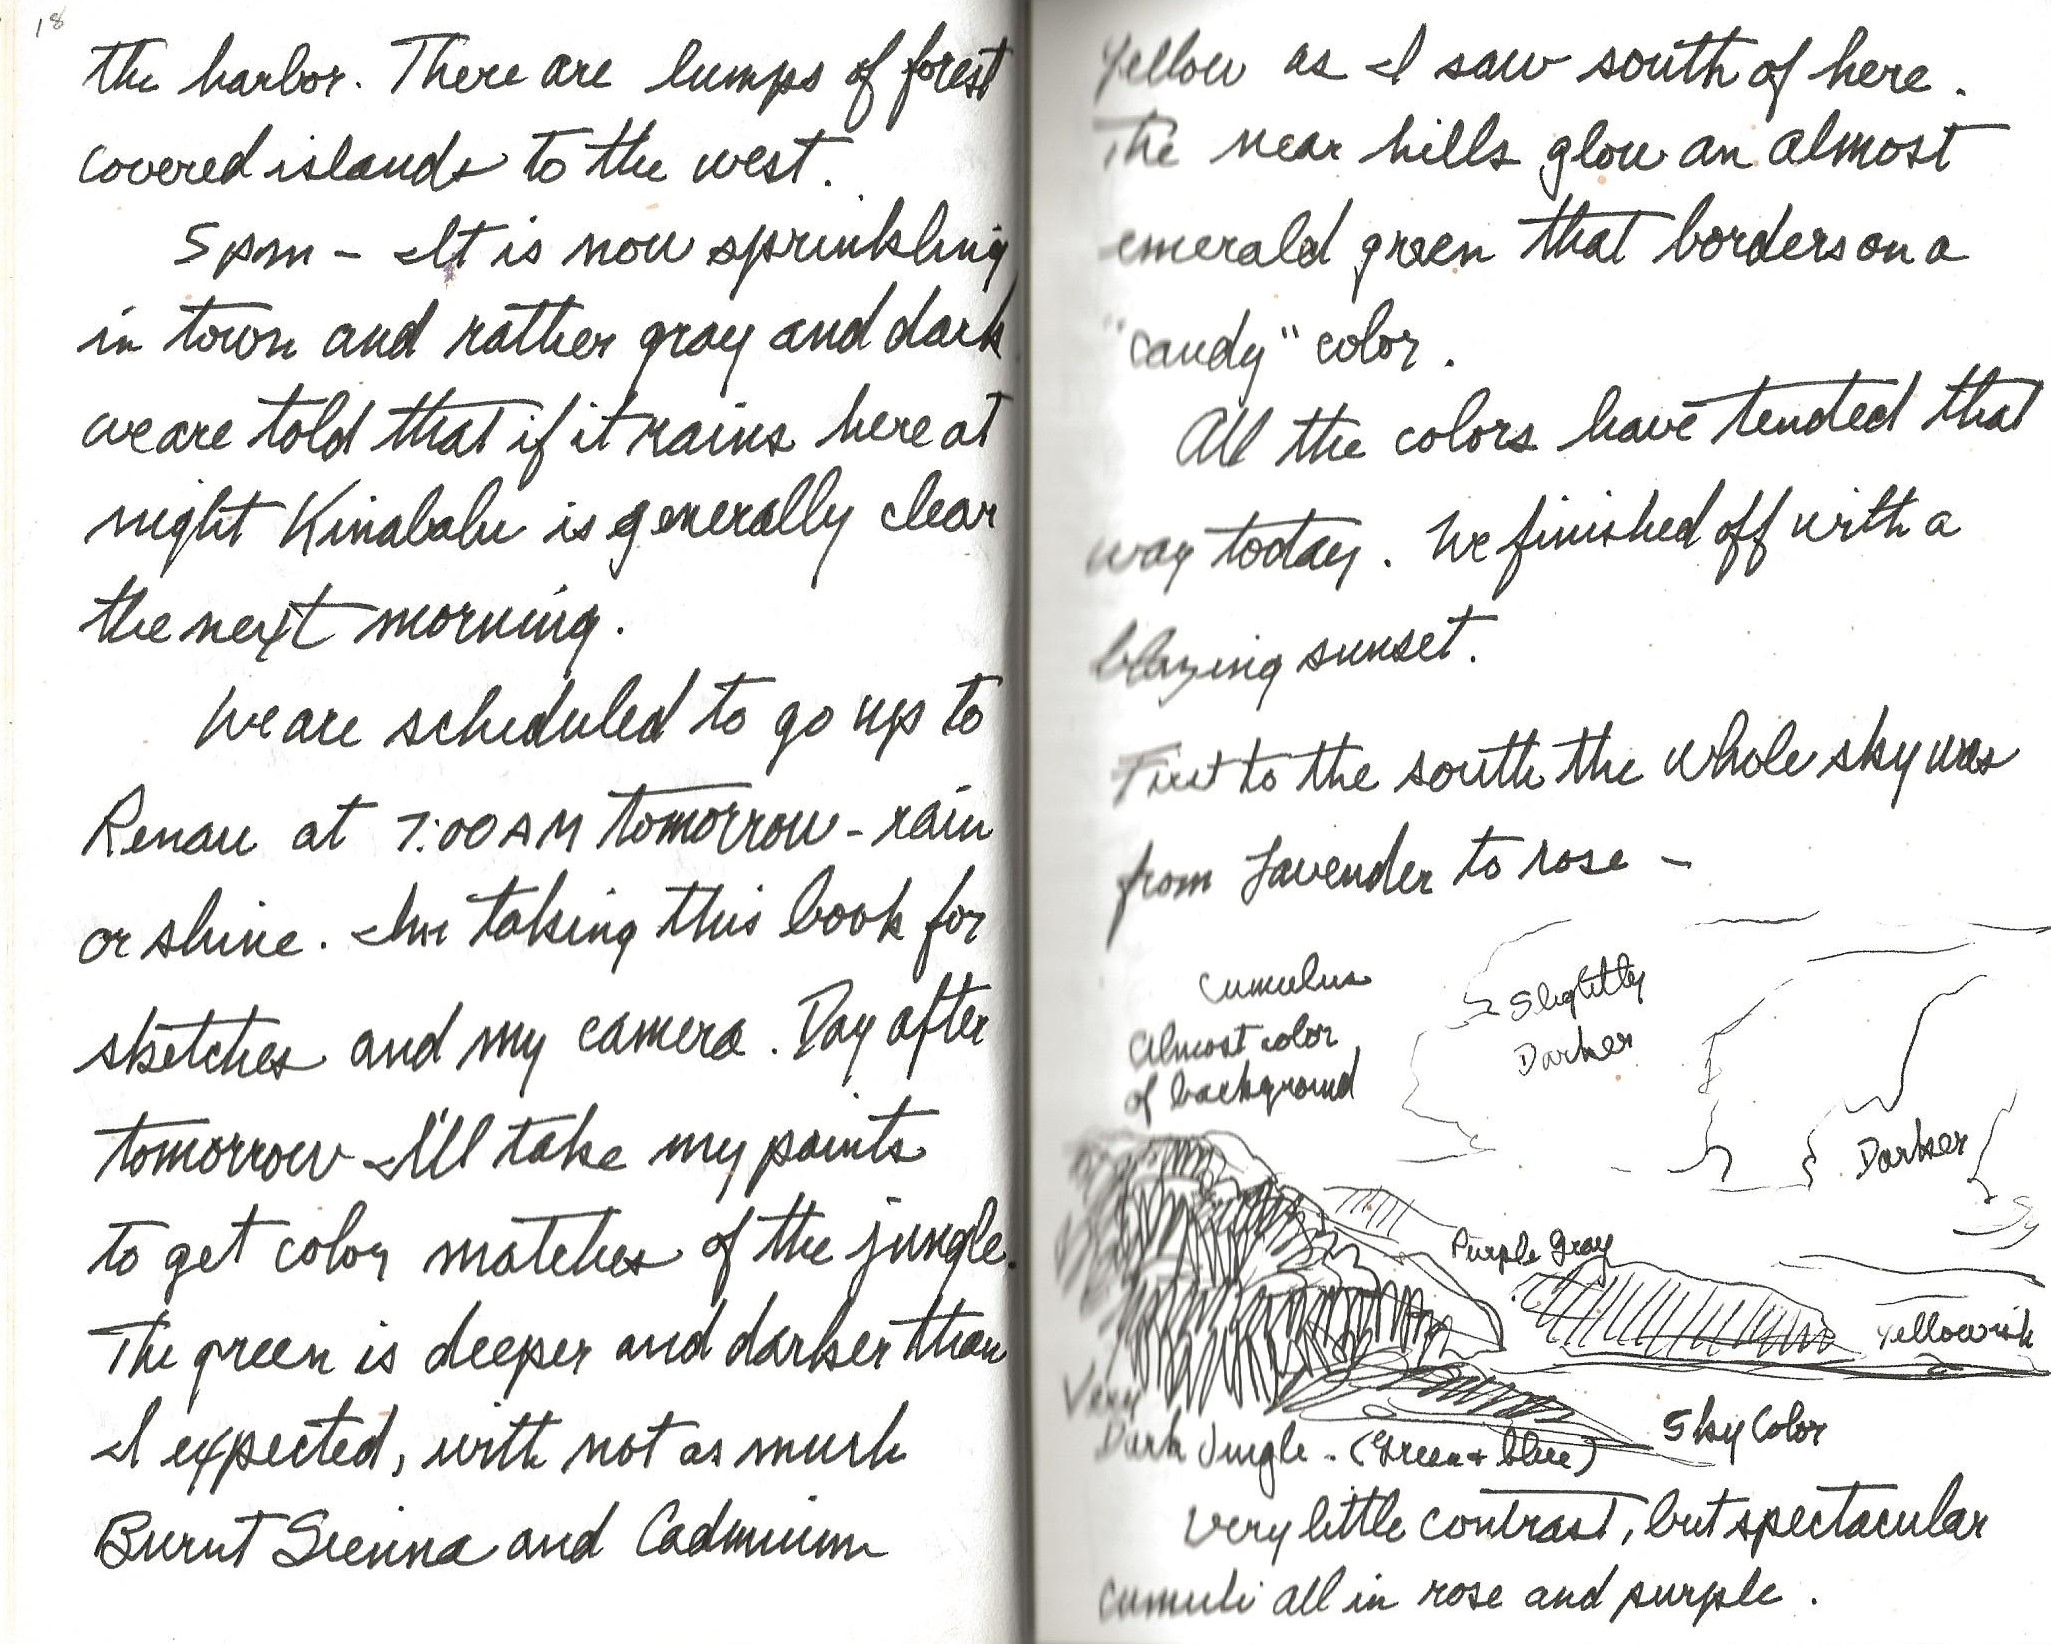 18
the harbor. There are lumps of forest
covered islands to the west.
5 pm – It is now sprinkling
in town and rather gray and dark
we are told that if it rains here at
night Kinabalu is generally clear
the next morning.
We are scheduled to go up to
Renau at 7:00 AM tomorrow – rain
or shine. I'm taking this book for
sketches and my camera. Day after
tomorrow I'll take my paints
to get color matches of the jungle.
The green is deeper and darker than
I expected, with not as much
Burnt Sienna and Cadmium
Yellow as I saw south of here.
The near hills glow an almost
emerald green that borders on a
"candy" color.
All the colors have tended that
way today. We finished off with a
blazing sunset.
First to the south the whole sky was
from Lavender to rose –
Cumulus
Almost color
of background
Slightly
Darker
Darker
Purple Gray
Yellowish
Very
Dark Jungle - (Green + blue)
Sky Color
Very little contrast, but spectacular
cumuli all in rose and purple.